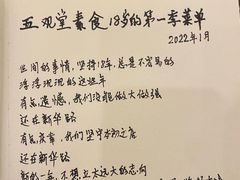 五观堂素食18岁的第一季菜单
2022年1月
世间的事情，坚持18年，总是不容易的
浮浮现现的这些年
有点遗憾，我们没能做大做强
还在新华路
有点欣喜，我们坚守本初之居
还在新华路
新的一年，不想立太远大的志向